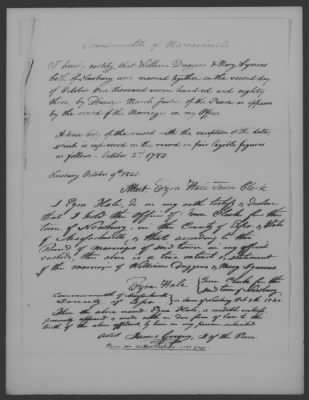 Commonwealth of Massachusetts
I hereby certify that William Duggens & Mary Symmes
both of Newbury were married together on the second day
of October One thousand seven hundred and eighty
three, by Ebenezer March Justice of the Peace as appears
by the record of the Marriages in my Office
A true Copy of the record with the exception of the date,
which is expressed on the record in fair legible figures
as follows - October 2d 1783.
Newbury October 9th 1820.
Attest Ezra Hale Town Clerk
I Ezra Hale, do on my oath testify & declare
that I hold the Office of Town Clerk for the
town of Newbury, in the County of Essex, & State
of Massachusetts, & that according to the
Record of marriages of said town in my official
custody, the above is a true extract & statement
of the marriage of William Duggens & Mary Symmes
Ezra Hale Town Clerk for the
said town of Newbury
Commonwealth of Massachusetts
County of Essex
Then the above named Ezra Hale, a credible witness
personally appeared & made oath in due form of law to the
truth of the above affidavit by him in my presence subscribed
Attest J. of the Peace